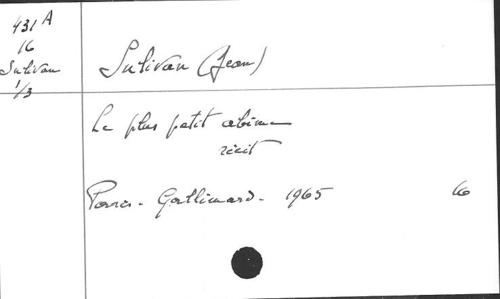 431 A
16
Sulivan
1/3
Sulivan (Jean)
Le plus petit abîme
récit
Paris - Gallimard - 1965